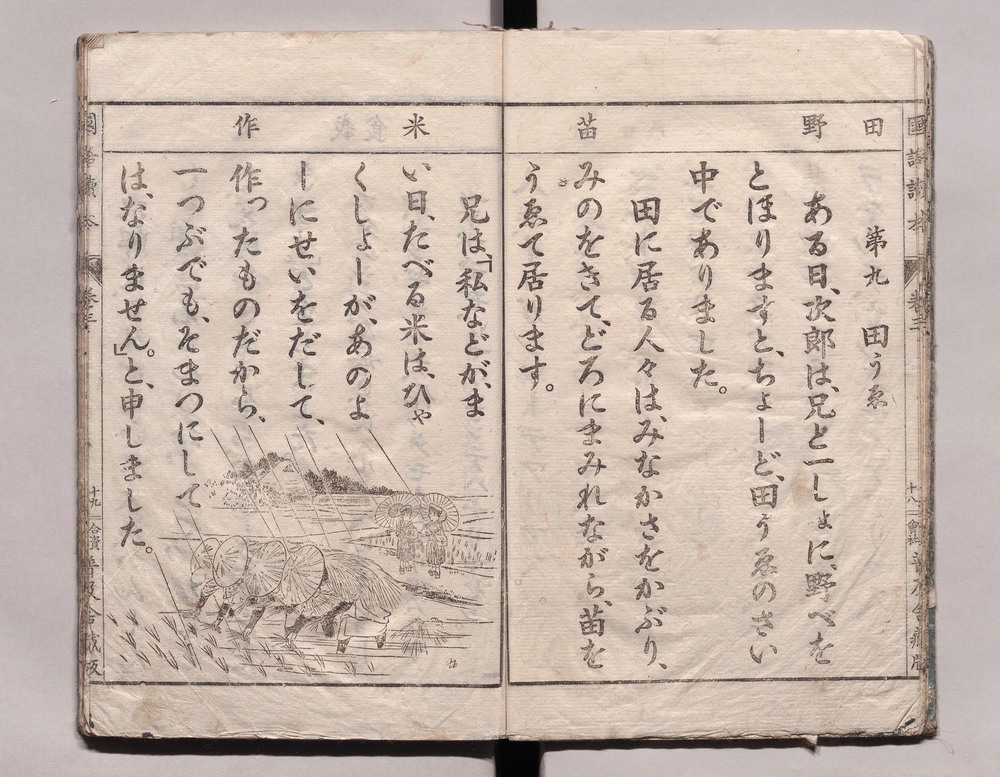 國語讀本
十八
普及舍藏版
田
野
苗
第九 田うゑ
ある日、次郎は、兄と一しょに、野べを
とほりますと、ちょーど、田うゑのさい
中でありました。
田に居る人々は、みなかさをかぶり、
みのをきて、どろにまみれながら、苗を
うゑて居ります。
米
作
兄は「私などが、ま
い日、たべる米は、ひゃ
くしょーが、あのよ
ーにせいをだして、
作ったものだから、
一つぶでも、そまつにして
は、なりません。」と、申しました。
國語讀本
十九
合資
普及舍藏版